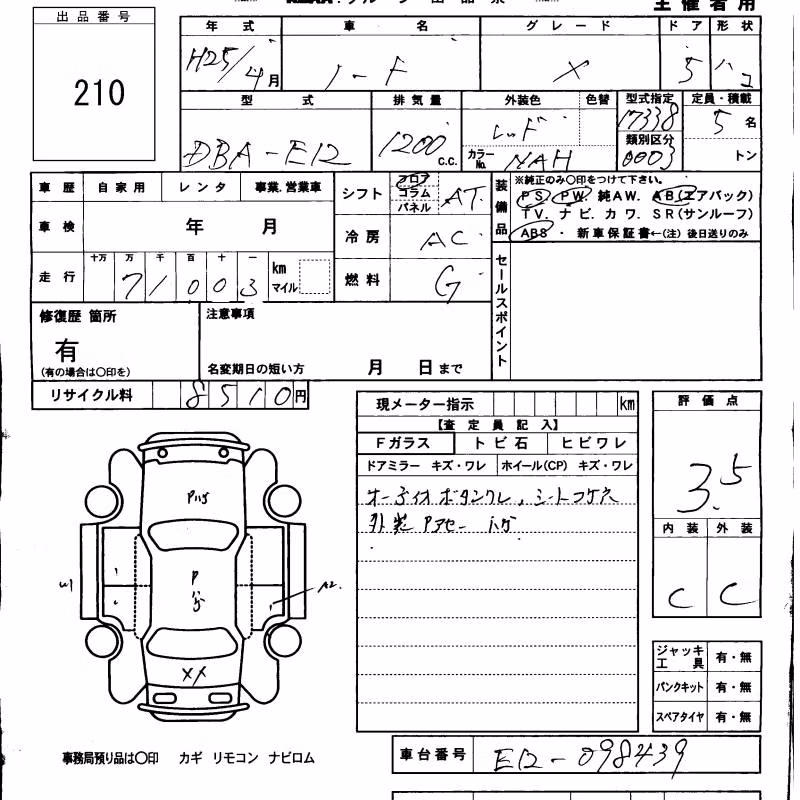 主催者用
出品番号
210
年式 車名 グレード ドア 形状
H25/4月 ノート X 5 ハコ
型式 排気量 外装色 色替 型式指定 定員・積載
DBA-E12 1200 c.c. レッド 17338 5名
カラーNo. NAH 類別区分 0003 トン
車歴 自家用 レンタ 事業.営業車
車検 年 月
走行 十万 万 千 百 十 一 km マイル
71003
シフト フロア コラム パネル AT
冷房 AC
燃料 G
装備品
※純正のみ○印をつけて下さい。
PS. PW. 純AW. AB(エアバック)
TV. ナビ. カワ. SR(サンルーフ)
ABS ・ 新車保証書←(注) 後日送りのみ
セールスポイント
修復歴 箇所
有
(有の場合は○印を)
注意事項
名変期日の短い方 月 日まで
リサイクル料 8510円
現メーター指示 km
【査定員記入】
Fガラス トビ石 ヒビワレ
ドアミラー キズ・ワレ ホイール(CP) キズ・ワレ
オーディオボタンワレ、シートコゲ穴
外装Pアセー ハゲ
評価点
3.5
内装 外装
C C
ジャッキ工具 有・無
パンクキット 有・無
スペアタイヤ 有・無
Pハゲ
P
ハゲ
W1
A2
XX
事務局預り品は○印 カギ リモコン ナビロム
車台番号 E12-098439